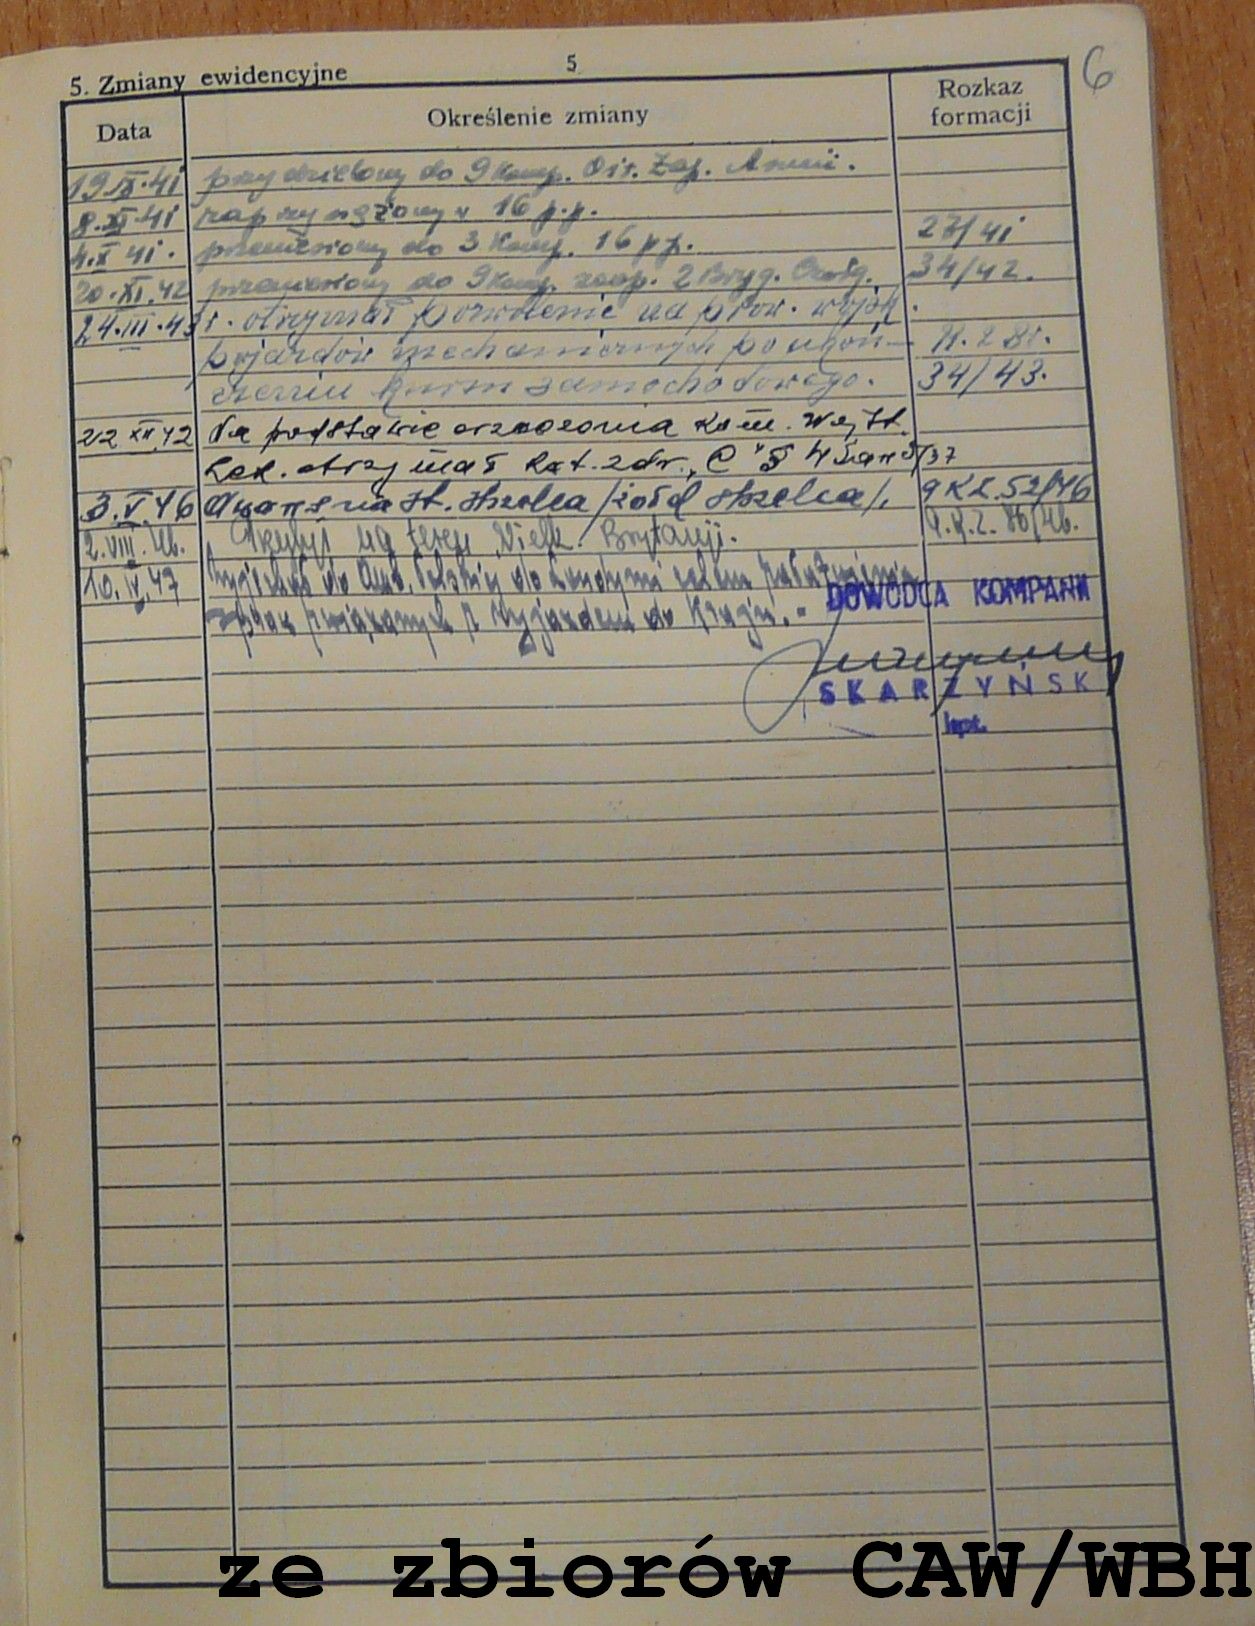 5
6
5. Zmiany ewidencyjne
Data Określenie zmiany Rozkaz formacji
19 41 przydzielony do 9 komp. Zap. Armii.
8.XI 41 zaprzysiężony w 16 p.p.
4.X 41. przeniesiony do 3 Komp. 16 pp. 27/41
20.XI.42 przeniesiony do 9 komp. zaop. 2 Bryg. Czołg. 34/42.
24.III.43 r. otrzymał pozwolenie na prow. wojsk.
pojazdów mechanicznych po ukoń- R. 2 Br.
czeniu kursu samochodowego. 34/43.
22 XII 42 Na podstawie orzeczenia Kom. Wojsk.
Lek. otrzymał kat. zdr. „C" § 4 San 5/37
3.V.46 Awans na st. strzelca /żołd strzelca/. 9 K.Z. 52/46
2.VIII.46. Przybył na teren Wielk. Brytanji. 9.K.Z. 86/46.
10.IV.47 do Amb. Polskiej do Londynu celem
spraw związanych z wyjazdem do Kraju.-
DOWÓDCA KOMPANII
SKARZYŃSK
kpt.
ze zbiorów CAW/WBH